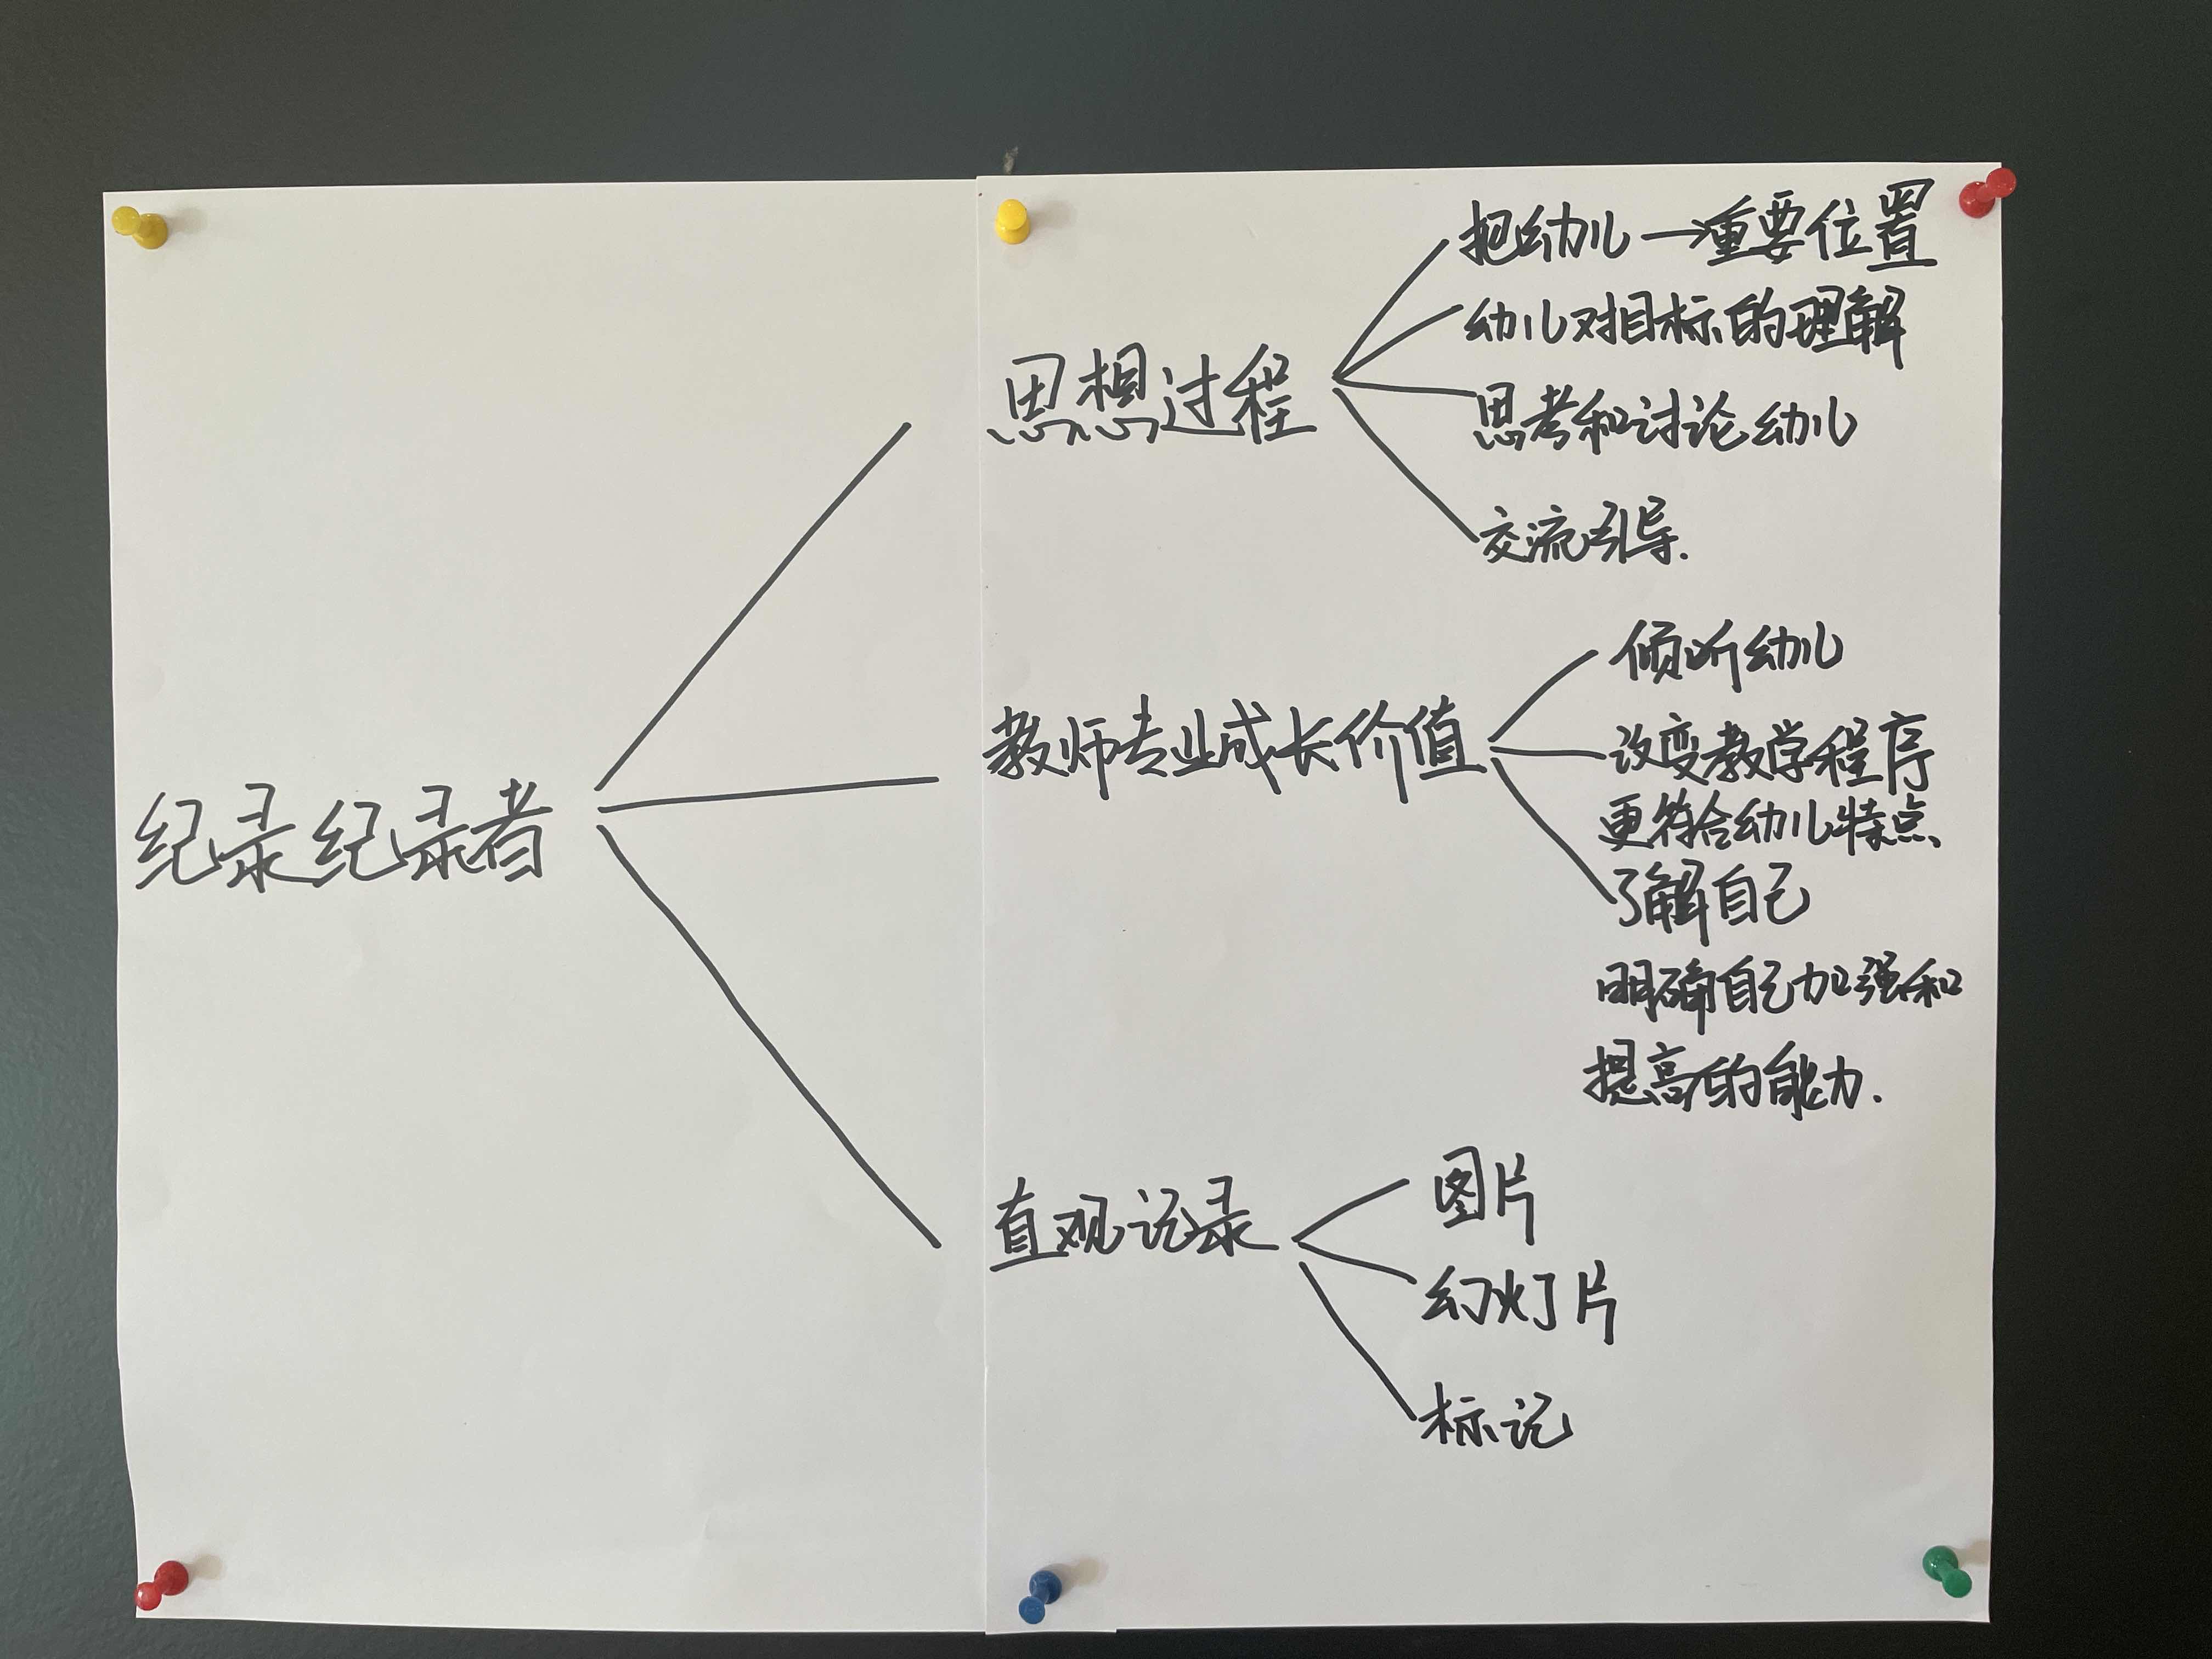 纪录纪录者
思想过程
把幼儿→重要位置
幼儿对目标的理解
思考和讨论幼儿
交流引导.
教师专业成长价值
倾听幼儿
改变教学程序
更符合幼儿特点、
了解自己
明确自己加强和
提高的能力.
直观记录
图片
幻灯片
标记